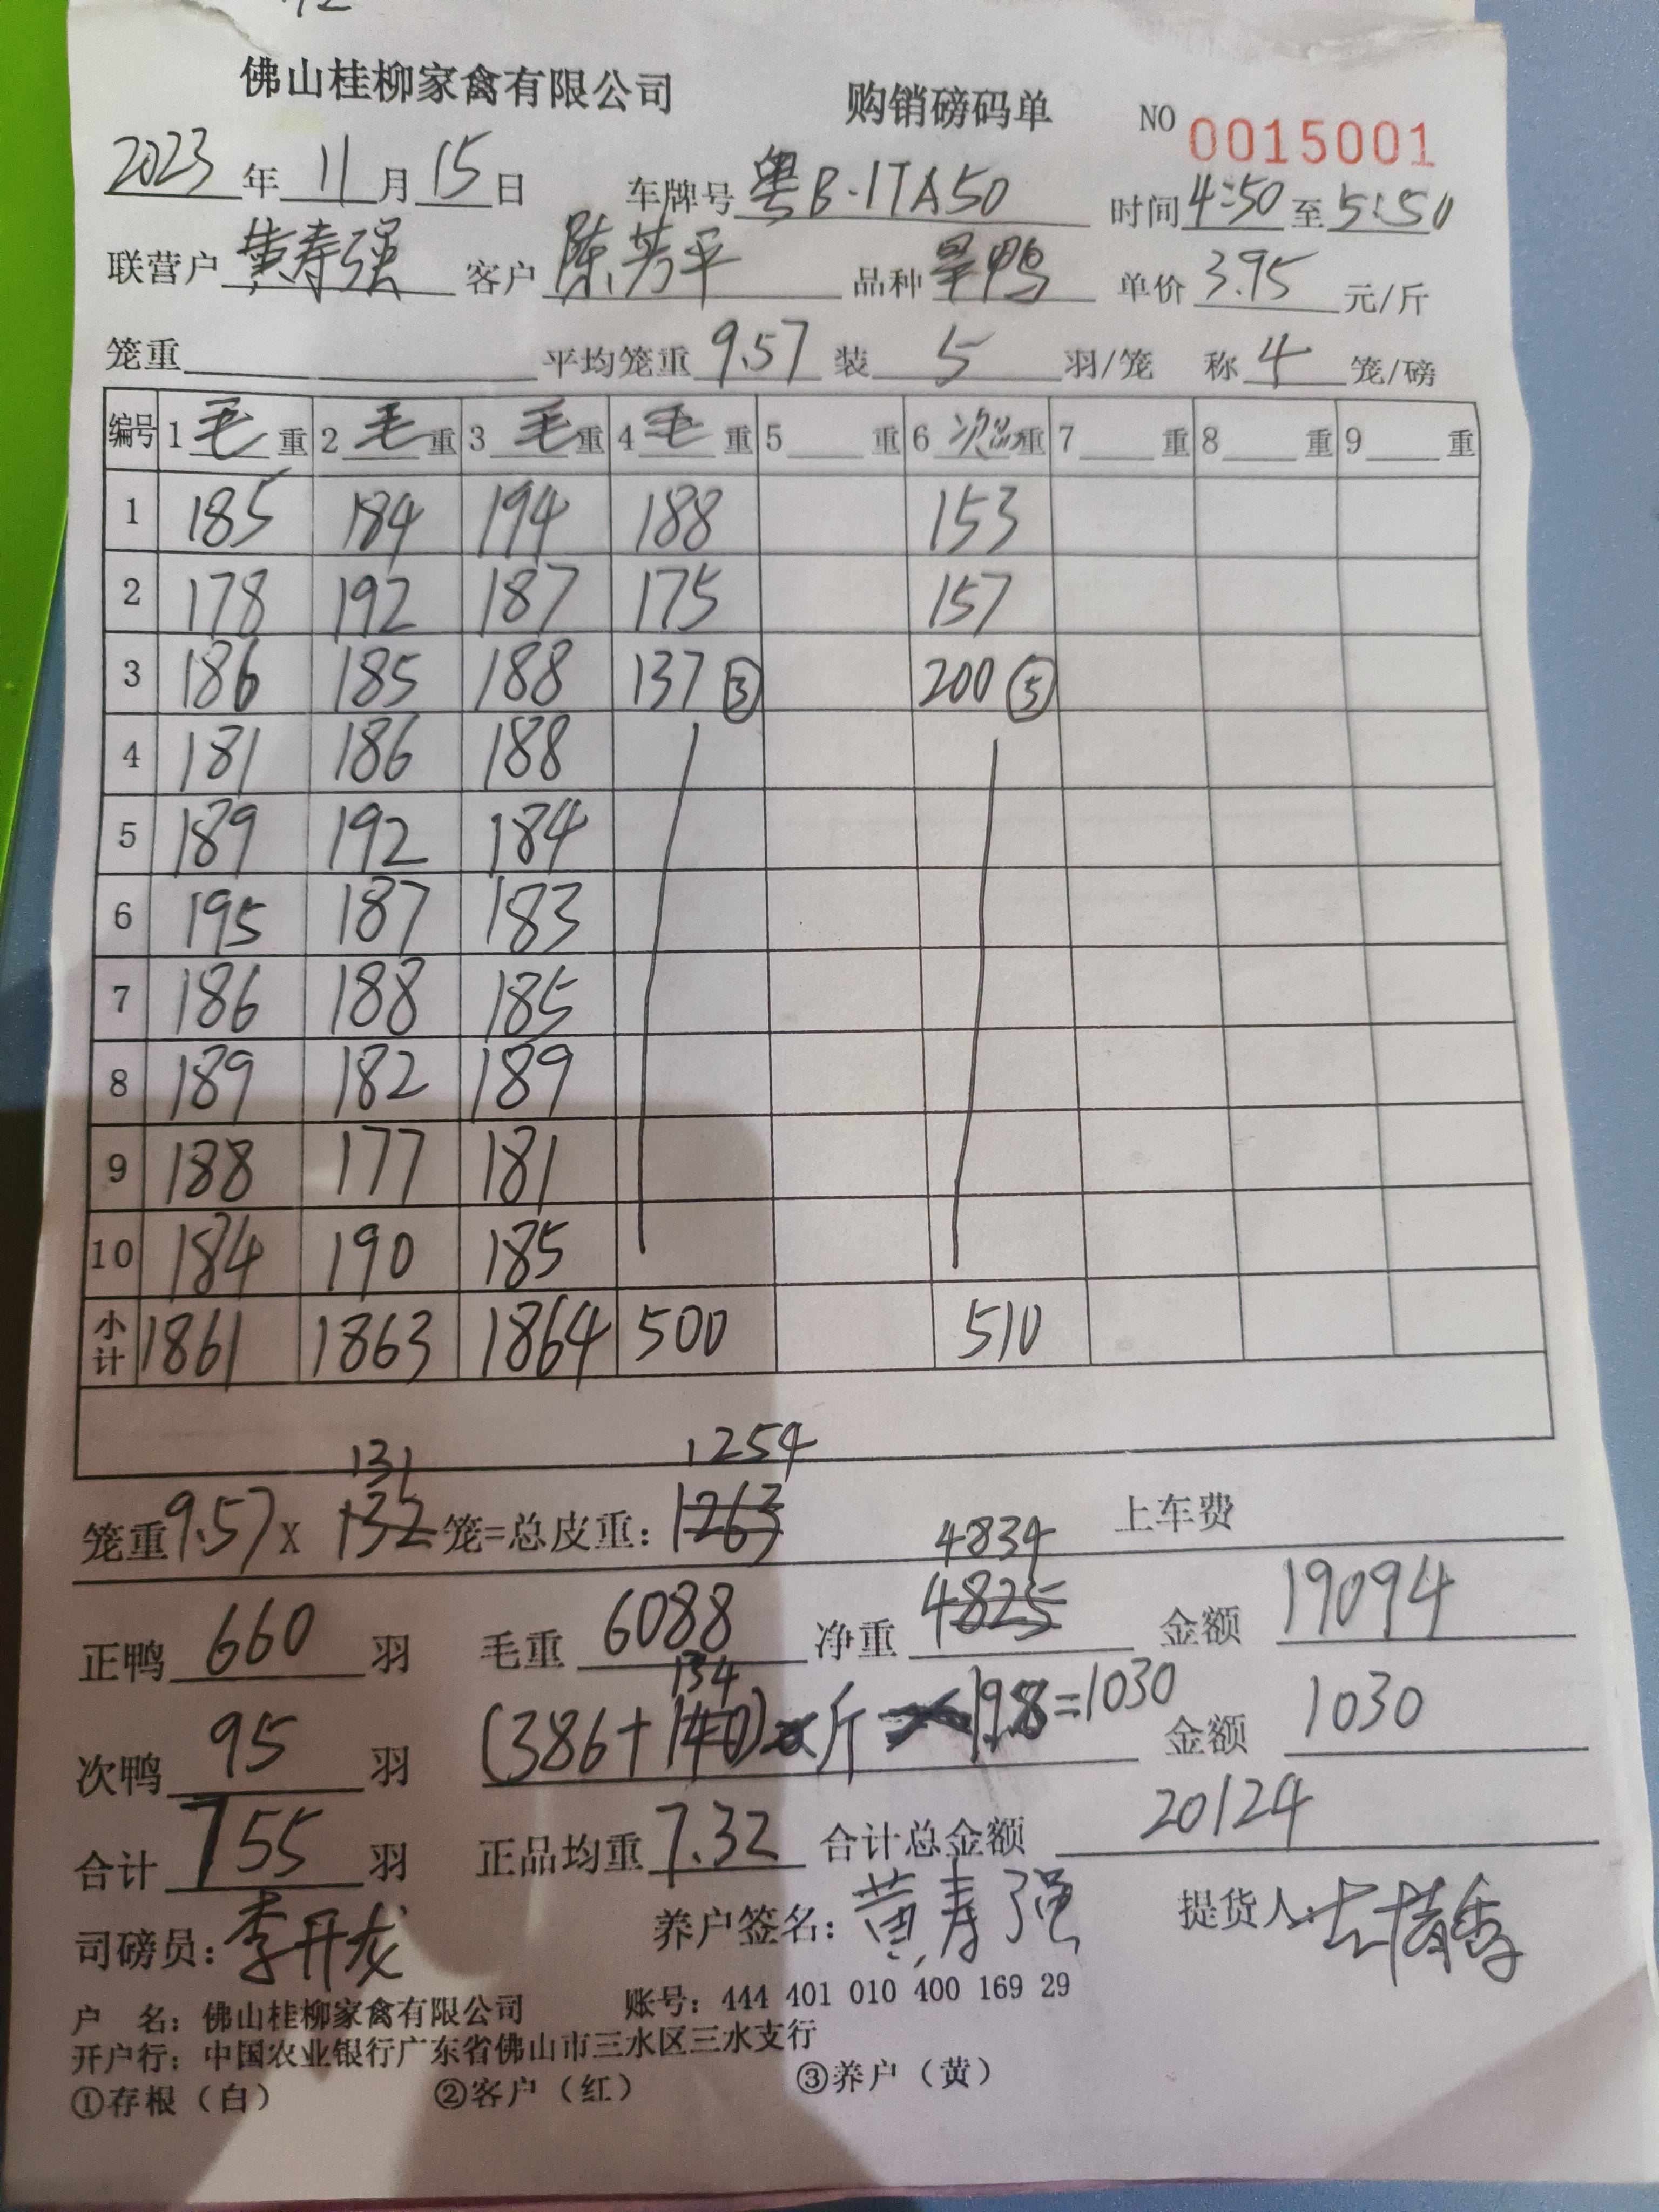 佛山桂柳家禽有限公司 购销磅码单 NO 0015001
2023年11月15日 车牌号粤B·1TA50 时间4:50至5:50
联营户黄寿强 客户陈芳平 品种旱鸭 单价3.95元/斤
笼重 平均笼重9.57 装5羽/笼 称4笼/磅
编号 1毛重 2毛重 3毛重 4毛重 5重 6次品重 7重 8重 9重
1 185 184 194 188 153
2 178 192 187 175 157
3 186 185 188 137 ③ 200 ⑤
4 181 186 188
5 189 192 184
6 195 187 183
7 186 188 185
8 189 182 189
9 188 177 181
10 184 190 185
小计 1861 1863 1864 500 510
131 1254
笼重9.57X132笼=总皮重：1263 上车费
4834
正鸭660羽 毛重6088 净重4825 金额19094
134
次鸭95羽 (386+140)斤 198=1030 金额1030
合计755羽 正品均重7.32 合计总金额20124
司磅员：李开龙 养户签名：黄寿强 提货人：
户 名：佛山桂柳家禽有限公司 账号：444 401 010 400 169 29
开户行：中国农业银行广东省佛山市三水区三水支行
①存根（白） ②客户（红） ③养户（黄）